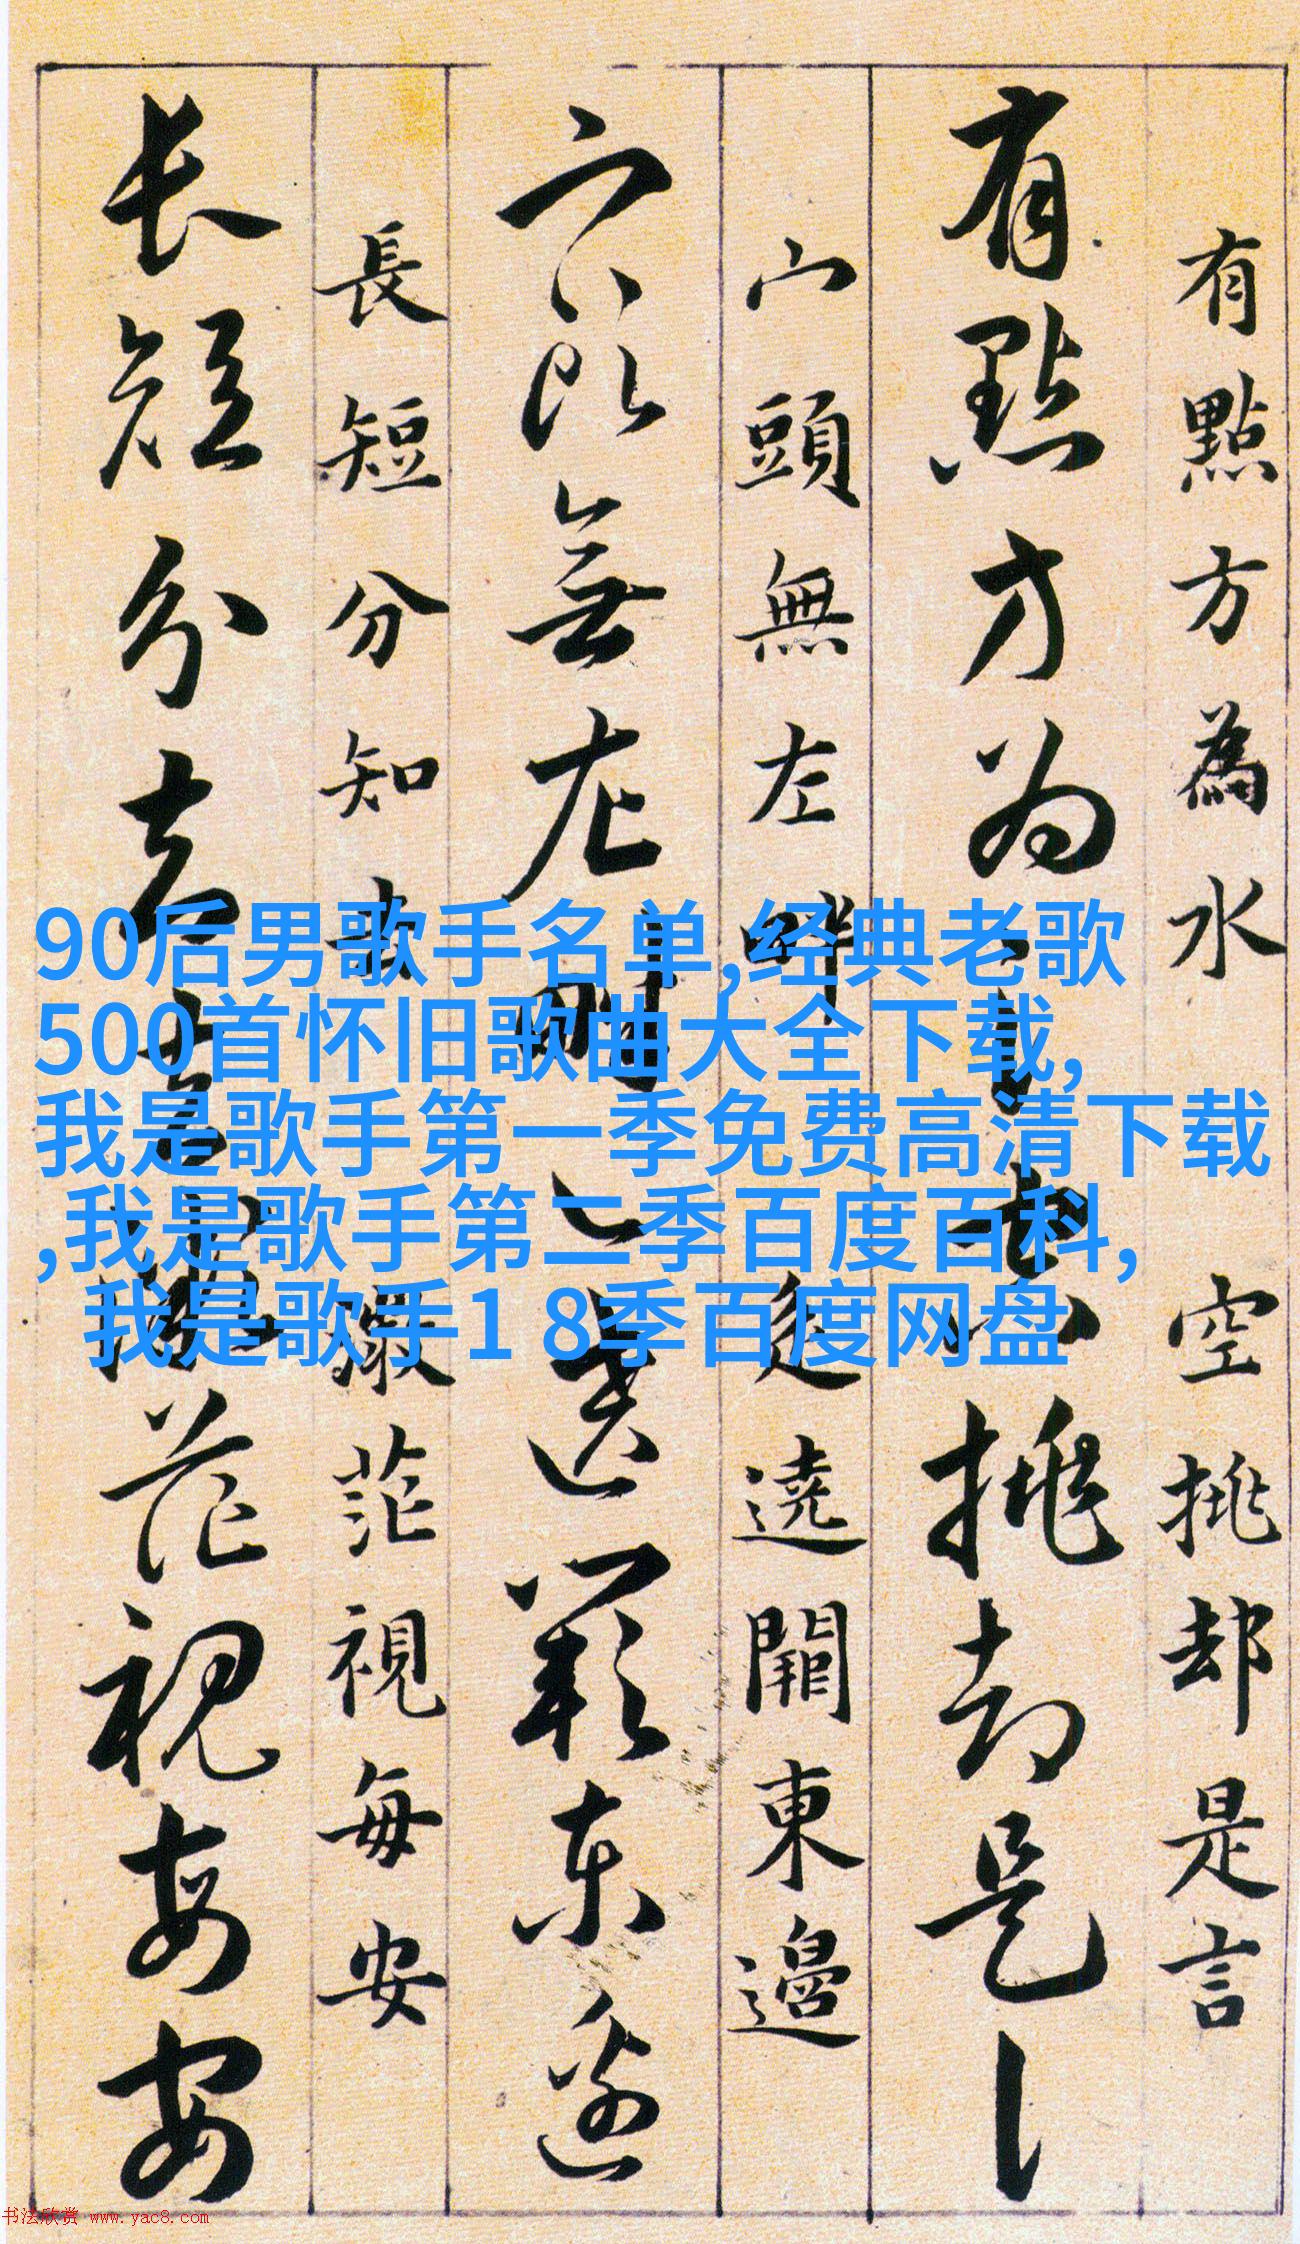 有點方為水空挑却是言
有點方為水空挑却是
宀頭無左畔辵遶闕東邊
宀頭無左畔遶闕東邊
長短分知去微茫視每安
長短分知去微茫視每安
90后男歌手名单,经典老歌
500首怀旧歌曲大全下载,
我是歌手第一季免费高清下载
,我是歌手第二季百度百科,
我是歌手1 8季百度网盘
书法欣赏 www.yac8.com